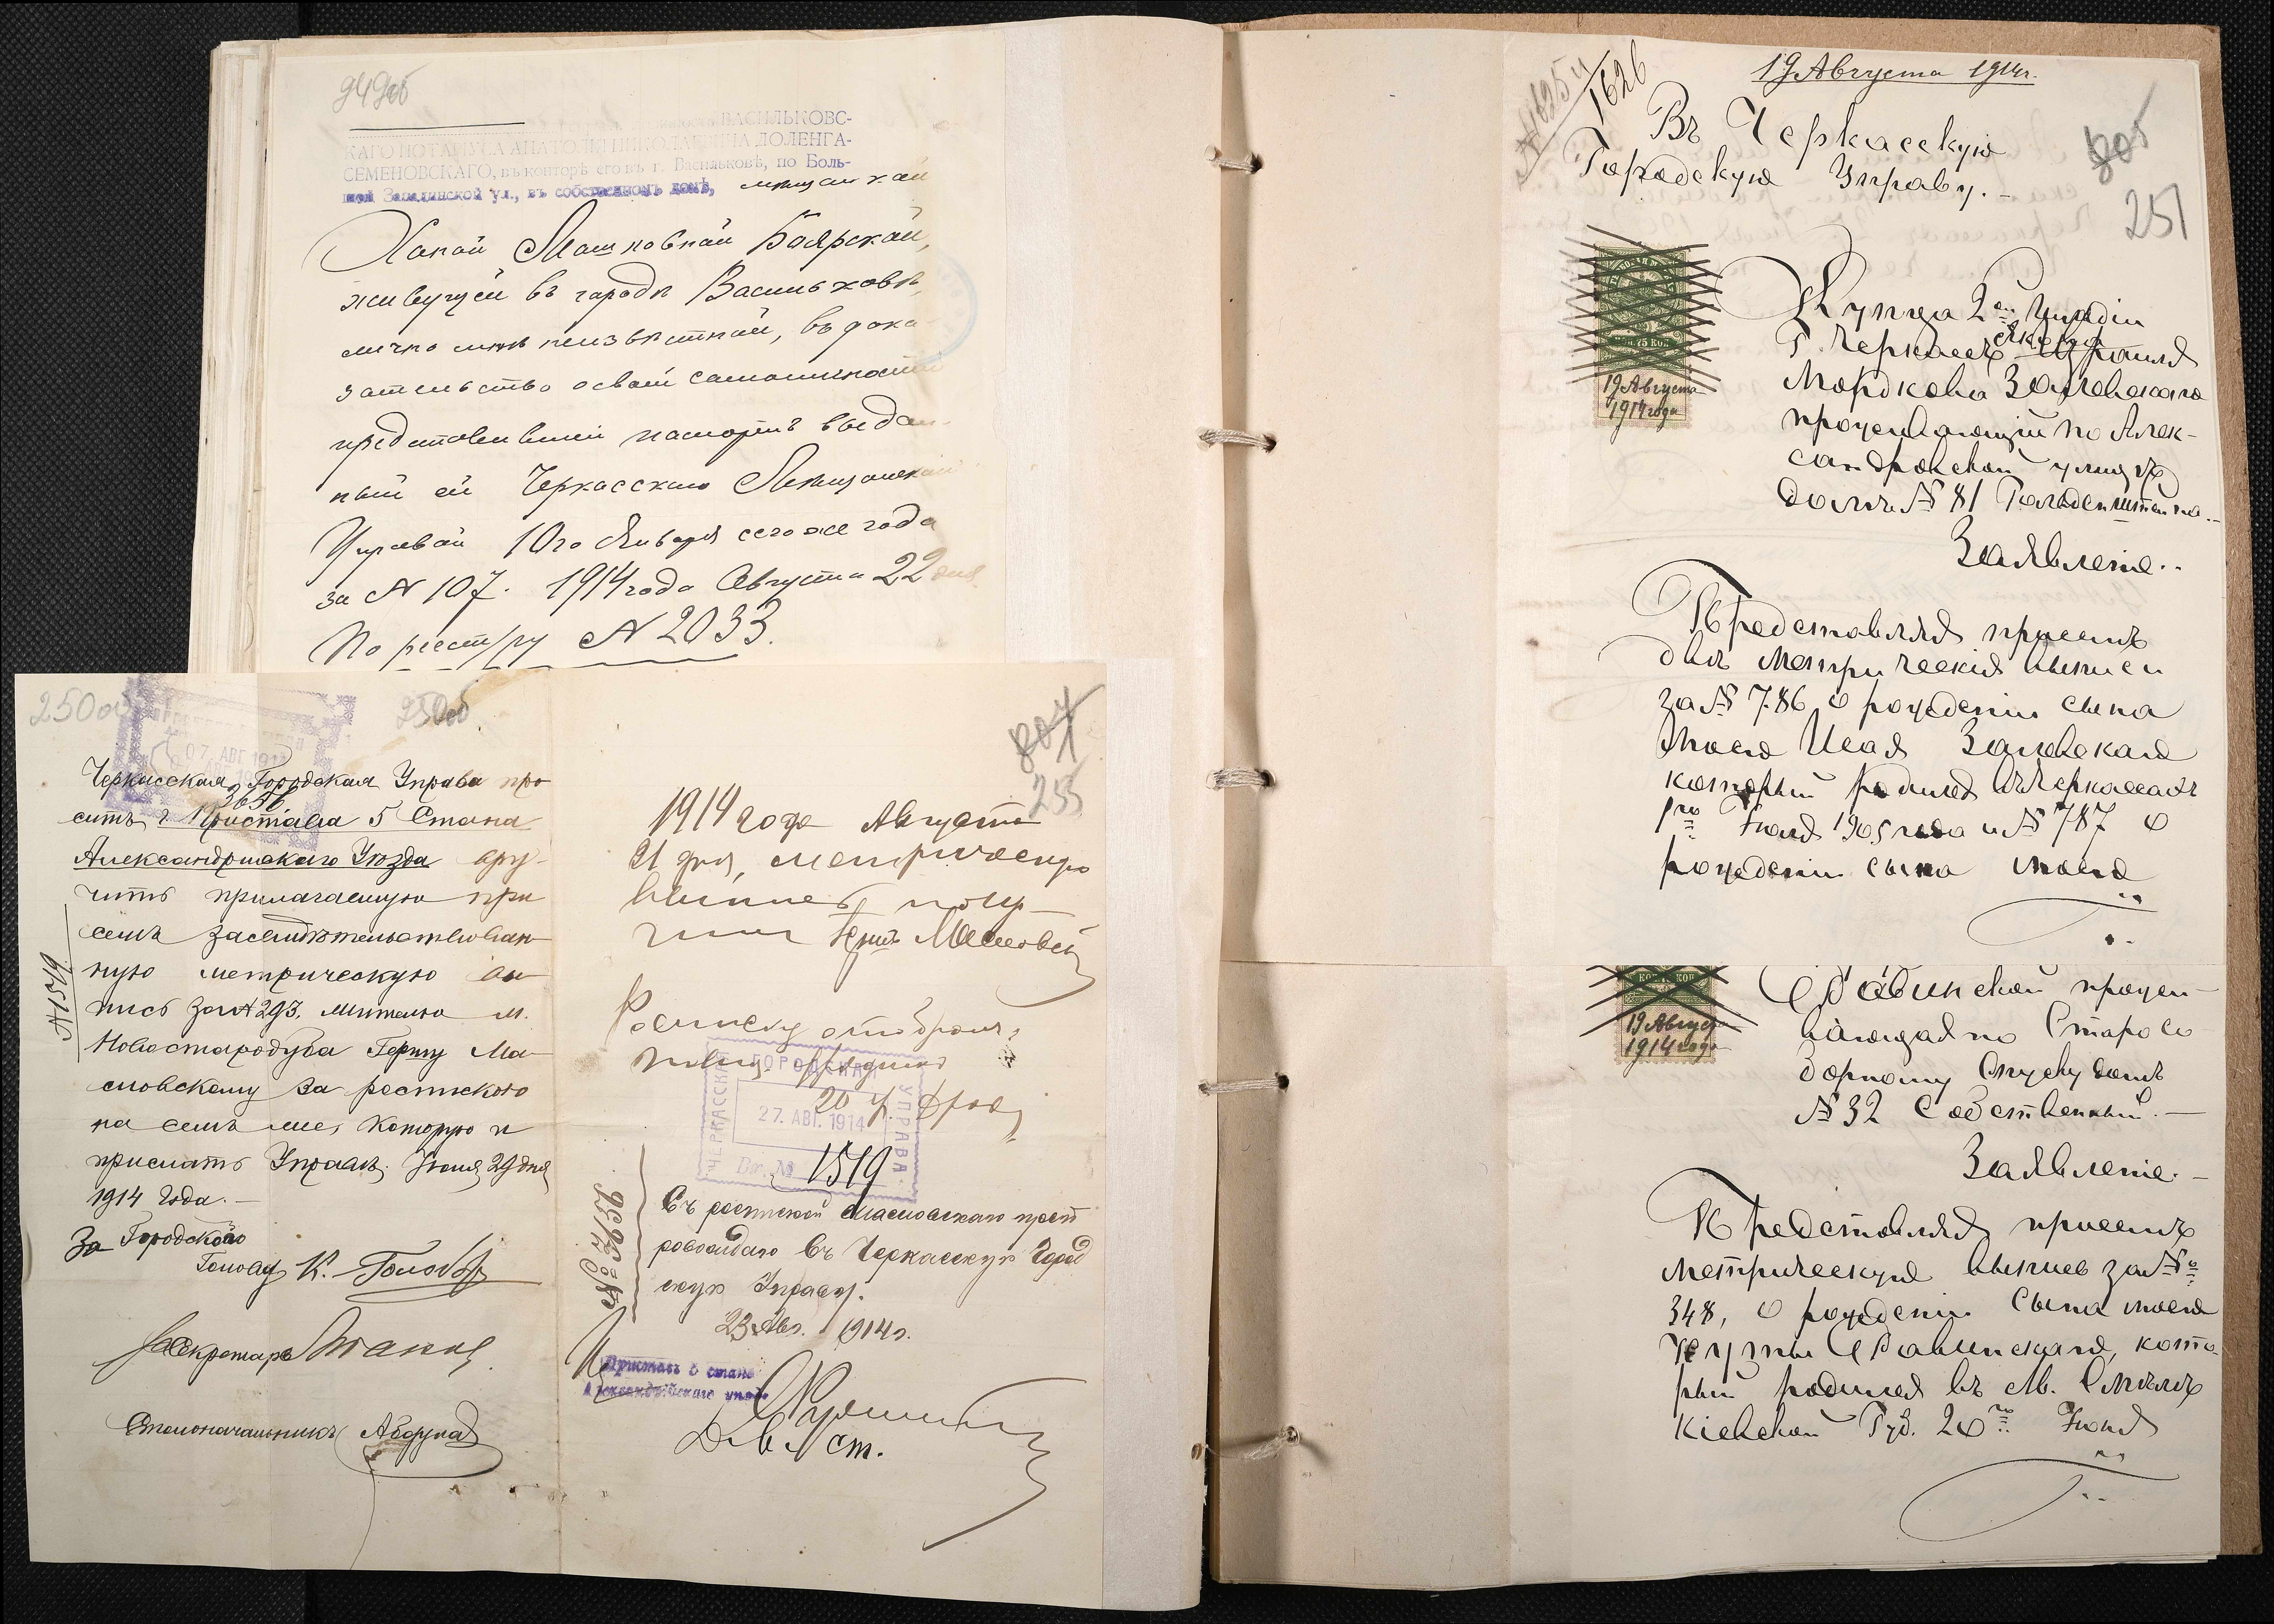 949об
ВАСИЛЬКОВС-
КАГО НОТАРІУСА АНАТОЛІЯ НИКОЛАЕВИЧА ДОЛЕНГА-
СЕМЕНОВСКАГО, въ конторѣ его въ г. Васильковѣ, по Боль-
шой Западинской ул., въ собственномъ домѣ, мѣщанкой
Ханой Машковной Боярской,
живущей въ городѣ Васильковѣ,
лично мнѣ неизвѣстной, въ дока-
зательство своей самоличности
представившей паспортъ выдан-
ный ей Черкасскою Мѣщанской
Управой 10го Января сего же года
за № 107. 1914 года Августа 22 дня
По реестру № 2033.
250об
250об
07 АВГ 1914
Черкасская Городская Управа про
3656
ситъ г. Пристава 5 Стана
Александрійскаго Уѣзда вру-
чить прилагаемую при
семъ засвидѣтельствован-
ную метрическую вы-
пись за № 293. жителю м.
Новостародуба Гершу Ма-
словскому за роспискою
на семъ же, которую и
прислать Управѣ. Іюня 29 дня
1914 года.-
За Городского
Голову К.
Секретарь
Столоначальникъ
804
255
1914 года Августа
21 дня, метрическую
выпись полу-
чилъ Герш Масловскій
Росписку отобралъ
ЧЕРКАССКАЯ ГОРОДСКАЯ УПРАВА
27. АВГ. 1914
Вх. № 1519
Съ роспиской Масловскаго преп
ровождаю въ Черкасскую Город
скую Управу.
23 Авг. 1914 г.
Приставъ 5 стана
Александрійскаго уѣзда
19 Августа 1914 г.
№ 1625 и
1626
Въ Черкасскую
Городскую Управу.-
805
251
75 КОП.
19 Августа
1914 года
Купца 2ой Гильдіи
Г. Черкассъ
Мордкова Заславскаго
проживающій по Алек-
сандровской улицѣ
домъ № 81 Гольденштейна.-
Заявленіе..
Представляя присемъ
двѣ метрическія выписи
за № 786 о рожденіи сына
моего Исая Заславская
который родился въ Черкассахъ
1го Іюля 1905 года и № 787 о
рожденіи сына моего
19 Августа
1914 года
прожи-
вающая по Старосо-
борному спуску домъ
№ 32 Собственный.-
Заявленіе.-
Представляя присемъ
метрическую выпись за №
348, о рожденіи сына моего
кото-
рый родился въ М. Смѣлѣ
Кіевской Губ. 20го Іюня